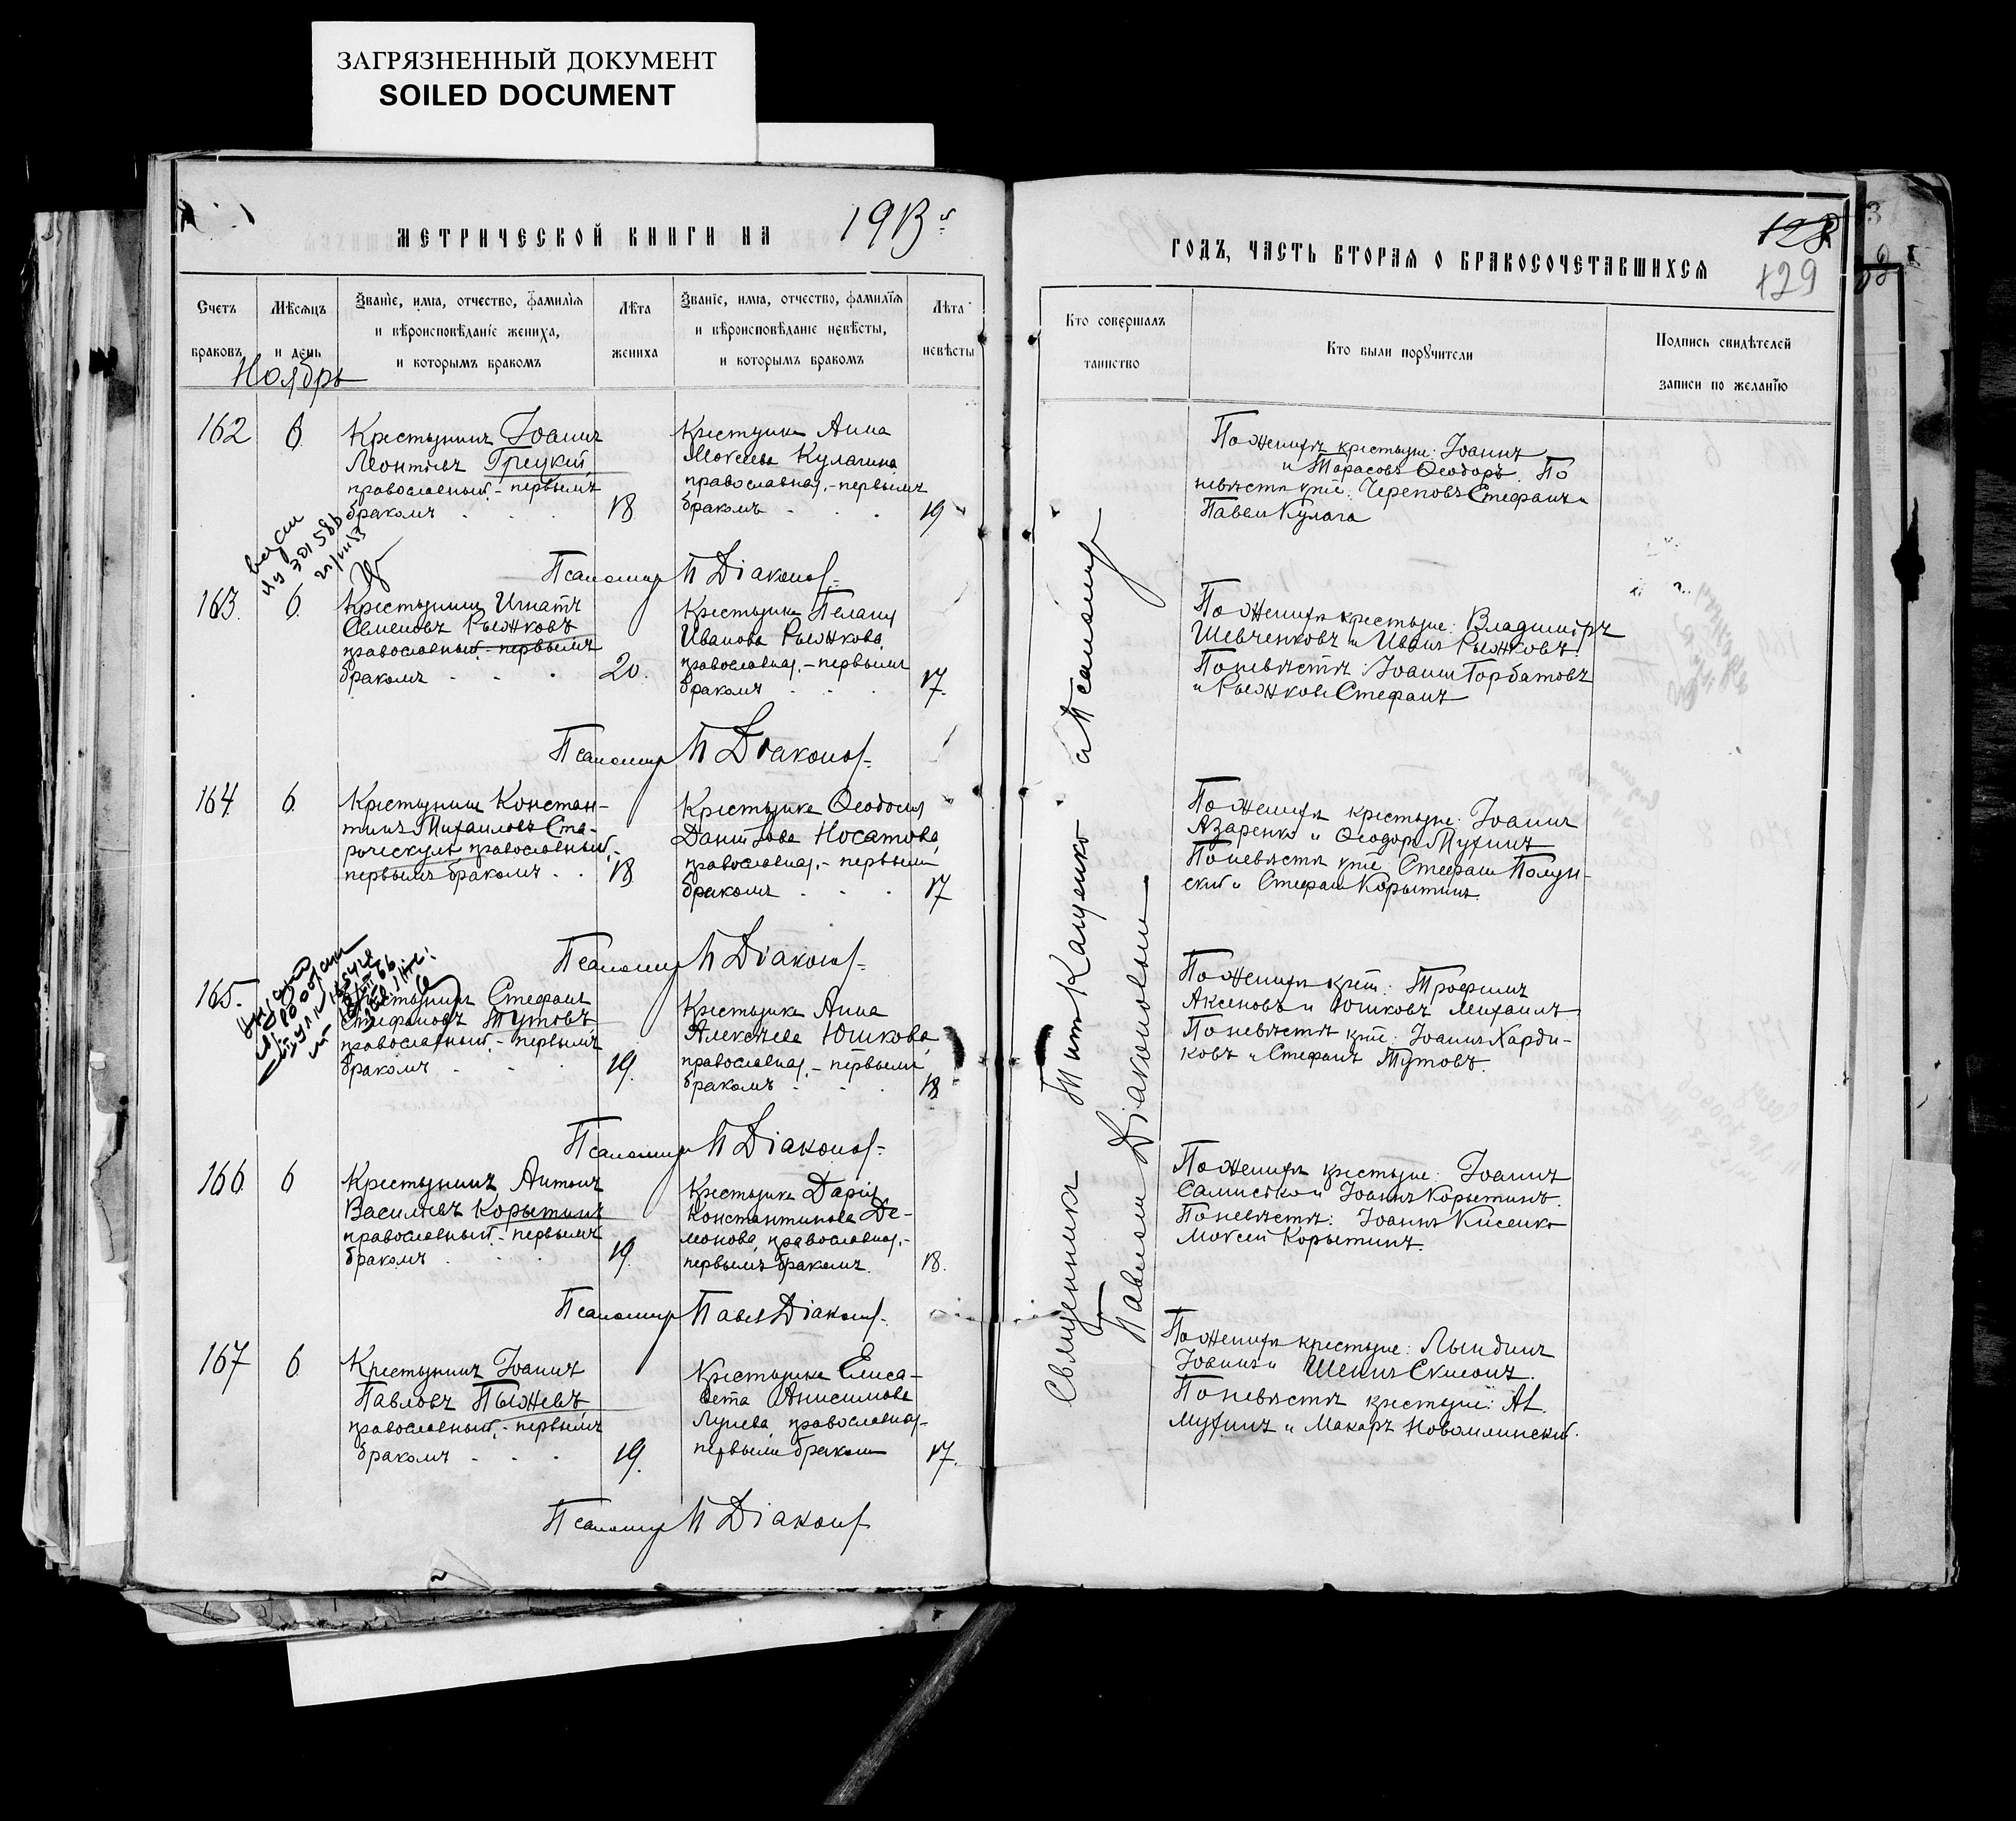 ЗАГРЯЗНЕННЫЙ ДОКУМЕНТ
SOILED DOCUMENT
МЕТРИЧЕСКОЙ КНИГИ НА 1913
Счетъ браковъ
Мѣсяцъ и день
Званіе, имя, отчество, фамилія
и вѣроисповѣданіе жениха,
и которымъ бракомъ
Лѣта жениха
Званіе, имя, отчество, фамилія
и вѣроисповѣданіе невѣсты,
и которымъ бракомъ
Лѣта невѣсты
Ноябрь
162
6
Крестьянинъ Іоаннъ
Леонтіевъ Грецкий,
православный, - первымъ
бракомъ
18
Крестьянка Анна
Моисеева Кулагина,
православная, - первымъ
бракомъ
19
Псаломщ П Діаконов
163
6
Крестьянинъ Игнатъ
Семеновъ Рыжковъ
православный, - первымъ
бракомъ
20.
Крестьянка Пелагія
Иванова Рыжкова,
православная, - первымъ
бракомъ
17.
Псаломщ П Діаконов
164
6
Крестьянинъ Констан-
тинъ Михаиловъ Ста-
роческулъ, православный, -
первымъ бракомъ
18
Крестьянка Ѳеодосія
Данилова Носатова,
православная, - первымъ
бракомъ
17
Псаломщ П Діаконов
165.
Крестьянинъ Стефанъ
Стефановъ Тутовъ
православный, - первымъ
бракомъ
19.
Крестьянка Анна
Алексѣева Юшкова,
православная, - первымъ
бракомъ
18
Псаломщ П Діаконов
166
6
Крестьянинъ Антонъ
Василіевъ Корытинъ
православный, - первымъ
бракомъ
19.
Крестьянка Дарія
Константинова Де-
монова, православная, -
первымъ бракомъ.
18.
Псаломщ Павел Діаконов
167
6
Крестьянинъ Іоаннъ
Павловъ Пыжевъ
православный, - первымъ
бракомъ
19.
Крестьянка Елиса-
вета Анисимова
Лунева, православная, -
первымъ бракомъ
17.
Псаломщ П Діаконов
ГОДЪ, ЧАСТЬ ВТОРАЯ О БРАКОСОЧЕТАВШИХСЯ
128
129
Кто совершалъ
таинство
Кто были поручители
Подпись свидѣтелей
записи по желанію
Священникъ Титъ Кащенко съ Псаломщ
Павломъ Діаконовым
По женихѣ крестьяне: Іоаннъ
и Тарасовъ Ѳеодоръ. По
невѣстѣ крест: Череповъ Стефанъ и
Павелъ Кулага
По женихѣ крестьяне: Владиміръ
Шевченковъ и Иванъ Рыжковъ.
По невѣстѣ: Іоаннъ Горбатовъ
и Рыжковъ Стефанъ
По женихѣ крестьяне: Іоаннъ
Азаренко и Ѳеодоръ Мухинъ
По невѣстѣ крест: Стефанъ Полун-
ский и Стефанъ Корытинъ.
По женихѣ крест: Трофимъ
Аксеновъ и Юшковъ Михаилъ
По невѣстѣ крест: Іоаннъ Харди-
ковъ и Стефанъ Тутовъ.
По женихѣ крестьяне: Іоаннъ
и Іоаннъ Корытинъ.
По невѣстѣ: Іоаннъ Кисенко
Моисей Корытинъ.
По женихѣ крестьяне: Лындинъ
Іоаннъ и
По невѣстѣ крестьяне:
Мухинъ и Макаръ Новомлинский.